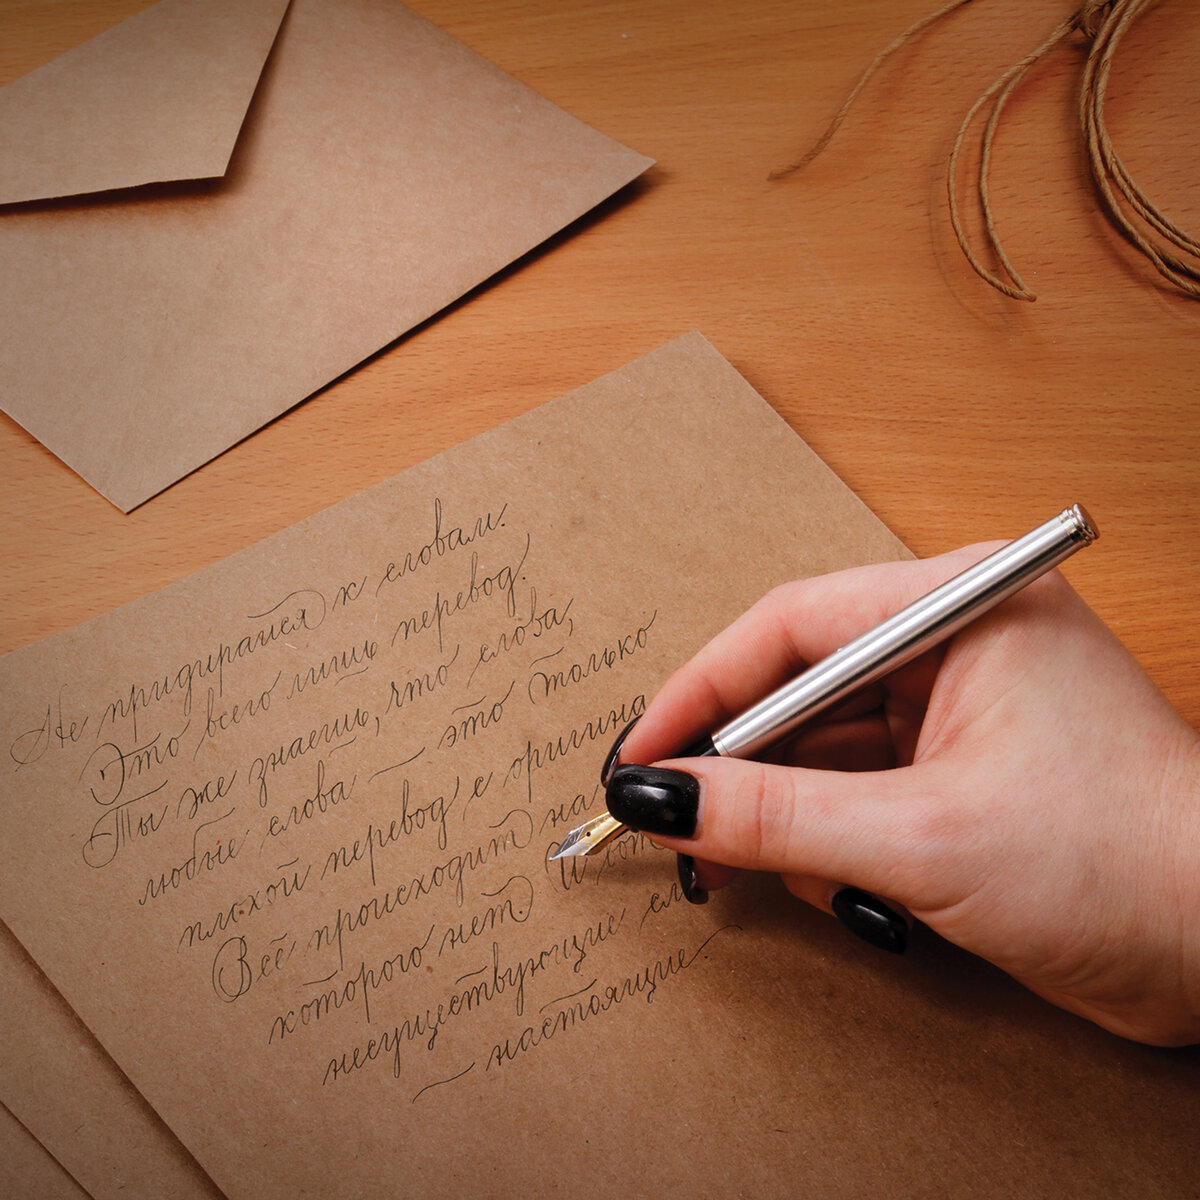 Не придирайся к словам.
Это всего лишь перевод.
Ты же знаешь, что слова,
любые слова — это только
плохой перевод с оригина
Всё происходит на
которого нет. И
несуществующие
— настоящие.